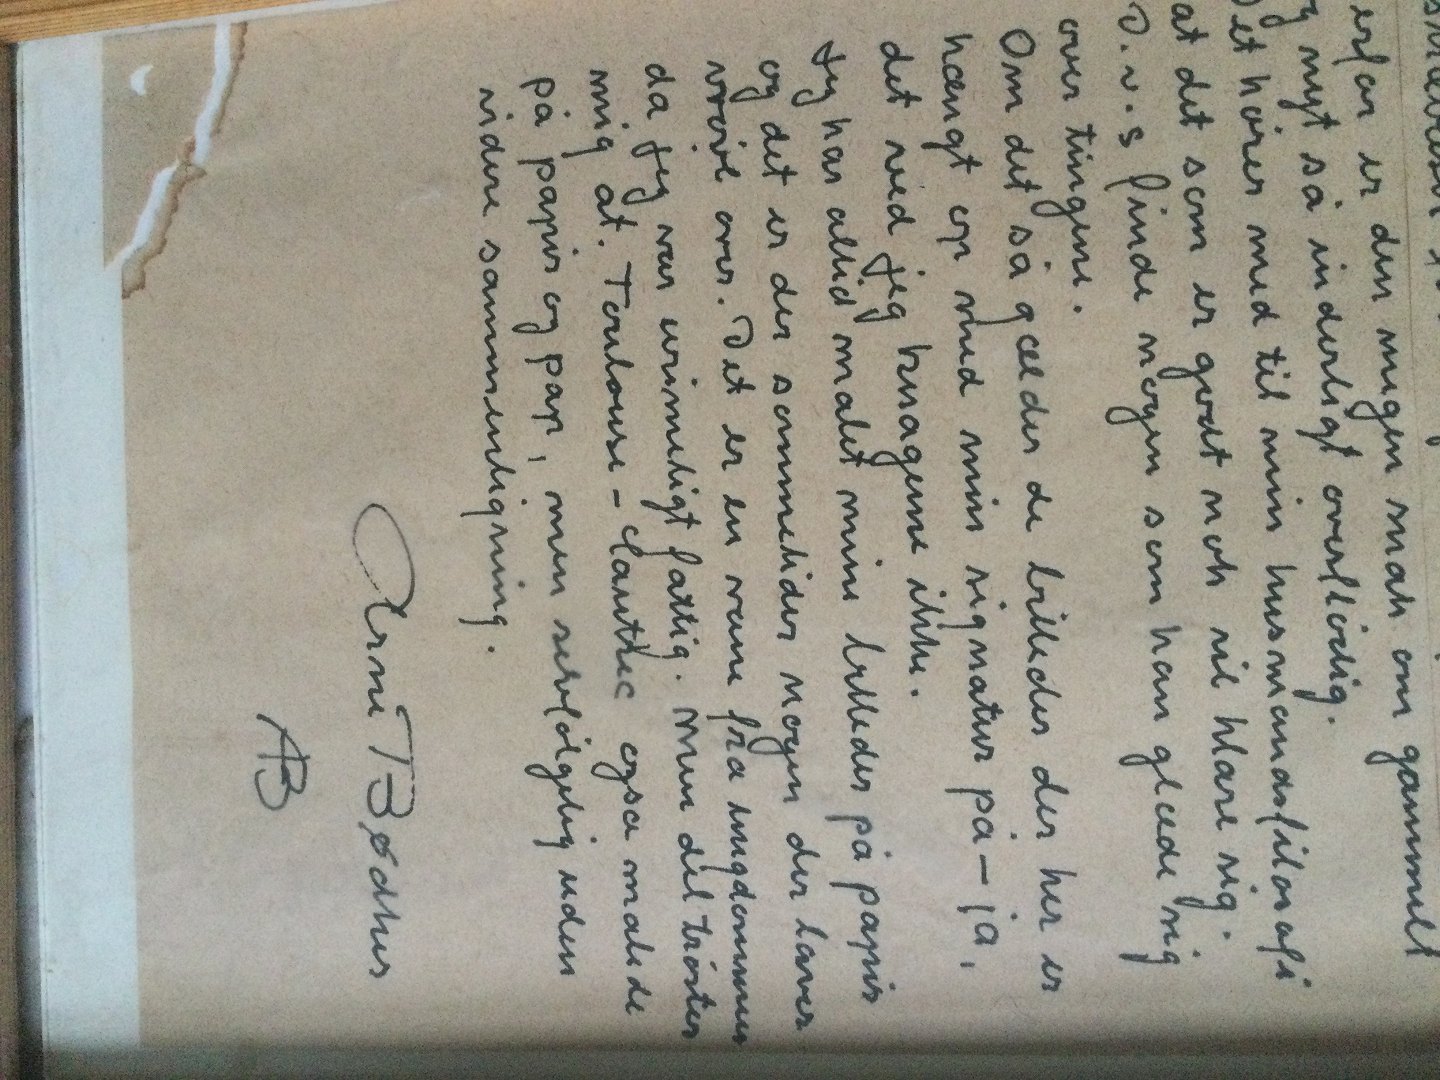 erfor er den megen snak om gammelt
og nyt så inderligt overflødig.
Det hører med til min husmandsfilosofi
at det som er godt nok vil klare sig.
D.v.s finde nogen som kan glæde sig
over tingene.
Om det så gælder de billeder der her er
hængt op med min signatur på - ja,
det ved jeg knagerne ikke.
Jeg har altid malet mine billeder på papir
og det er der sommetider nogen der laver
vrøvl over. Det er en vane fra ungdommen
da jeg var urimeligt fattig. Men det trøster
mig at. Toulouse - Lautrec også malede
på papir og pap, men selvfølgelig uden
videre sammenligning.
Arne Bødker
AB